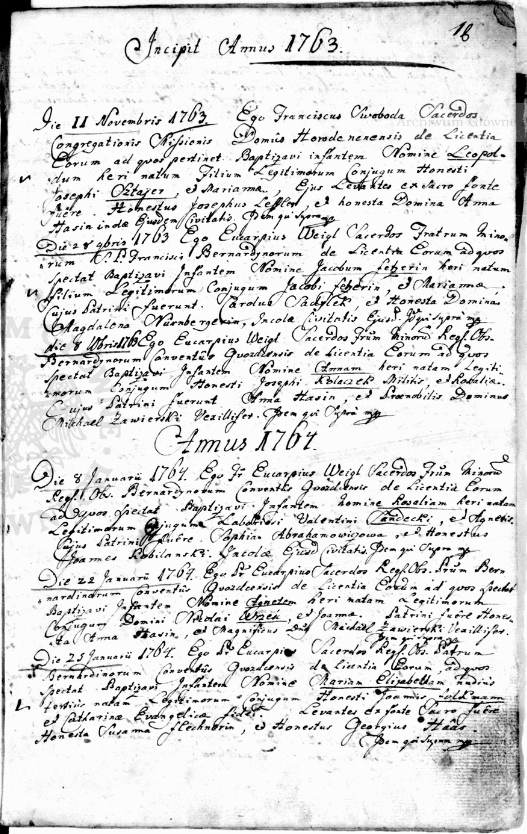 18
Incipit Annus 1763.
Die 11 Novembris 1763 Ego Franciscus Swoboda Sacerdos
Congregationis Missionis Domus Horodenensis de Licentia
Eorum ad quos pertinet Baptizavi infantem Nomine Leopol-
dum heri natum Filium Legitimorum Conjugum Honesti
Josephi Sztajer, et Mariannae, Ejus Levantes ex Sacro fonte
fuere Honestus Josephus Lessler, et honesta Domina Anna
Hasin inde Ejusdem Civitatis. Idem qui Supra mp
Die 28 9bris 1763 Ego Eucarpius Weigl Sacerdos Fratrum Mino-
rum S. P. Francisci Bernardynorum de Licentia Eorum ad quos
spectat Baptizavi Infantem Nomine Jacobum Seberin heri natum
filium Legitimorum Conjugum Jacobi Seberin, et Mariannae,
Cujus Patrini fuerunt Carolus Sadylek, et Honesta Domina
Magdalena Nürnbergerin, Incolae Civitatis Ejusd. Idem qui supra mp
Die 8 Xbris 1763 Ego Eucarpius Weigl Sacerdos Frum Minorũ Regl. Obs.
Bernardynorum Conventûs Gvozdensis de Licentia Eorum ad quos
spectat Baptizavi Infantem Nomine Annam heri natam Legiti
morum Conjugum Honesti Josephi Kolaczek Militis, et Rosalia.
Cujus Patrini fuerunt Anna Hasin, et Praenobilis Dominus
Michael Zawierski Vexillifer. Idem qui Supra mp
Annus 1764.
Die 8 Januarii 1764. Ego Fr. Eucarpius Weigl Sacerdos Frum Minorũ
Regl. Ob. Bernardynorum Conventûs Gvozdensis de Licentia Eorum
ad quos spectat Baptizavi Infantem nomine Rosaliam heri natam
Legitimorum Conjugum Laboriosi Valentini Zandecki, et Agnetis.
Cujus Patrini fuêre Sophia Abrahamowiczowa, et Honestus
Joannes Kobilanski. Incolae Ejusd Civitatis Idem qui Supra mp
Die 22 Januarii 1764. Ego Fr Eucarpius Sacerdos Regl. Obs. Frum Ber-
nardinorum Conventûs Gvozdecensis de Licentia Eorum ad quos spectat
Baptizavi Infantem Nomine Agnetem heri natam Legitimorum
Conjugum Domini Nikolai, et Joanna. Patrini fuêre Hones-
ta Anna Hasin, et Magnificus Dnus Michaël Zawierski Vexillifer.
Idem qui supra mp
Die 25 Januarii 1764. Ego Fr Eucarpi Sacerdos Regl. Obs. Fratrum
Bernardinorum Conventûs Gvozdensis de Licentia Eorum ad quos
spectat Baptizavi Infantem Nomine Mariam Elizabetham nudius
tertius natam Legitimorum Conjugum Honesti Joannis Foldkmann
et Catharinae Evangelicae fidei. Levantes ex fonte Sacro fuêre
Honesta Susanna Flechnerin, et Honestus Georgius Haas.
Idem qui Supra mp